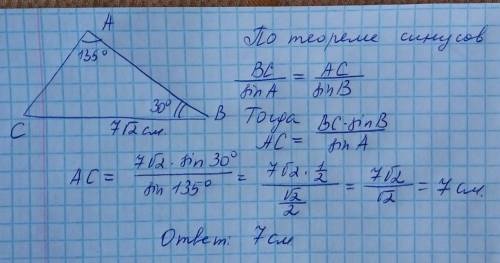 A
135°
30°
C
B
7√2 см.
По теореме синусов
BC/sin A = AC/sin B
Тогда
AC = BC·sin B/sin A
AC = 7√2 · sin 30°/sin 135° = 7√2 · 1/2/√2/2 = 7√2/√2 = 7 см.
Ответ: 7 см